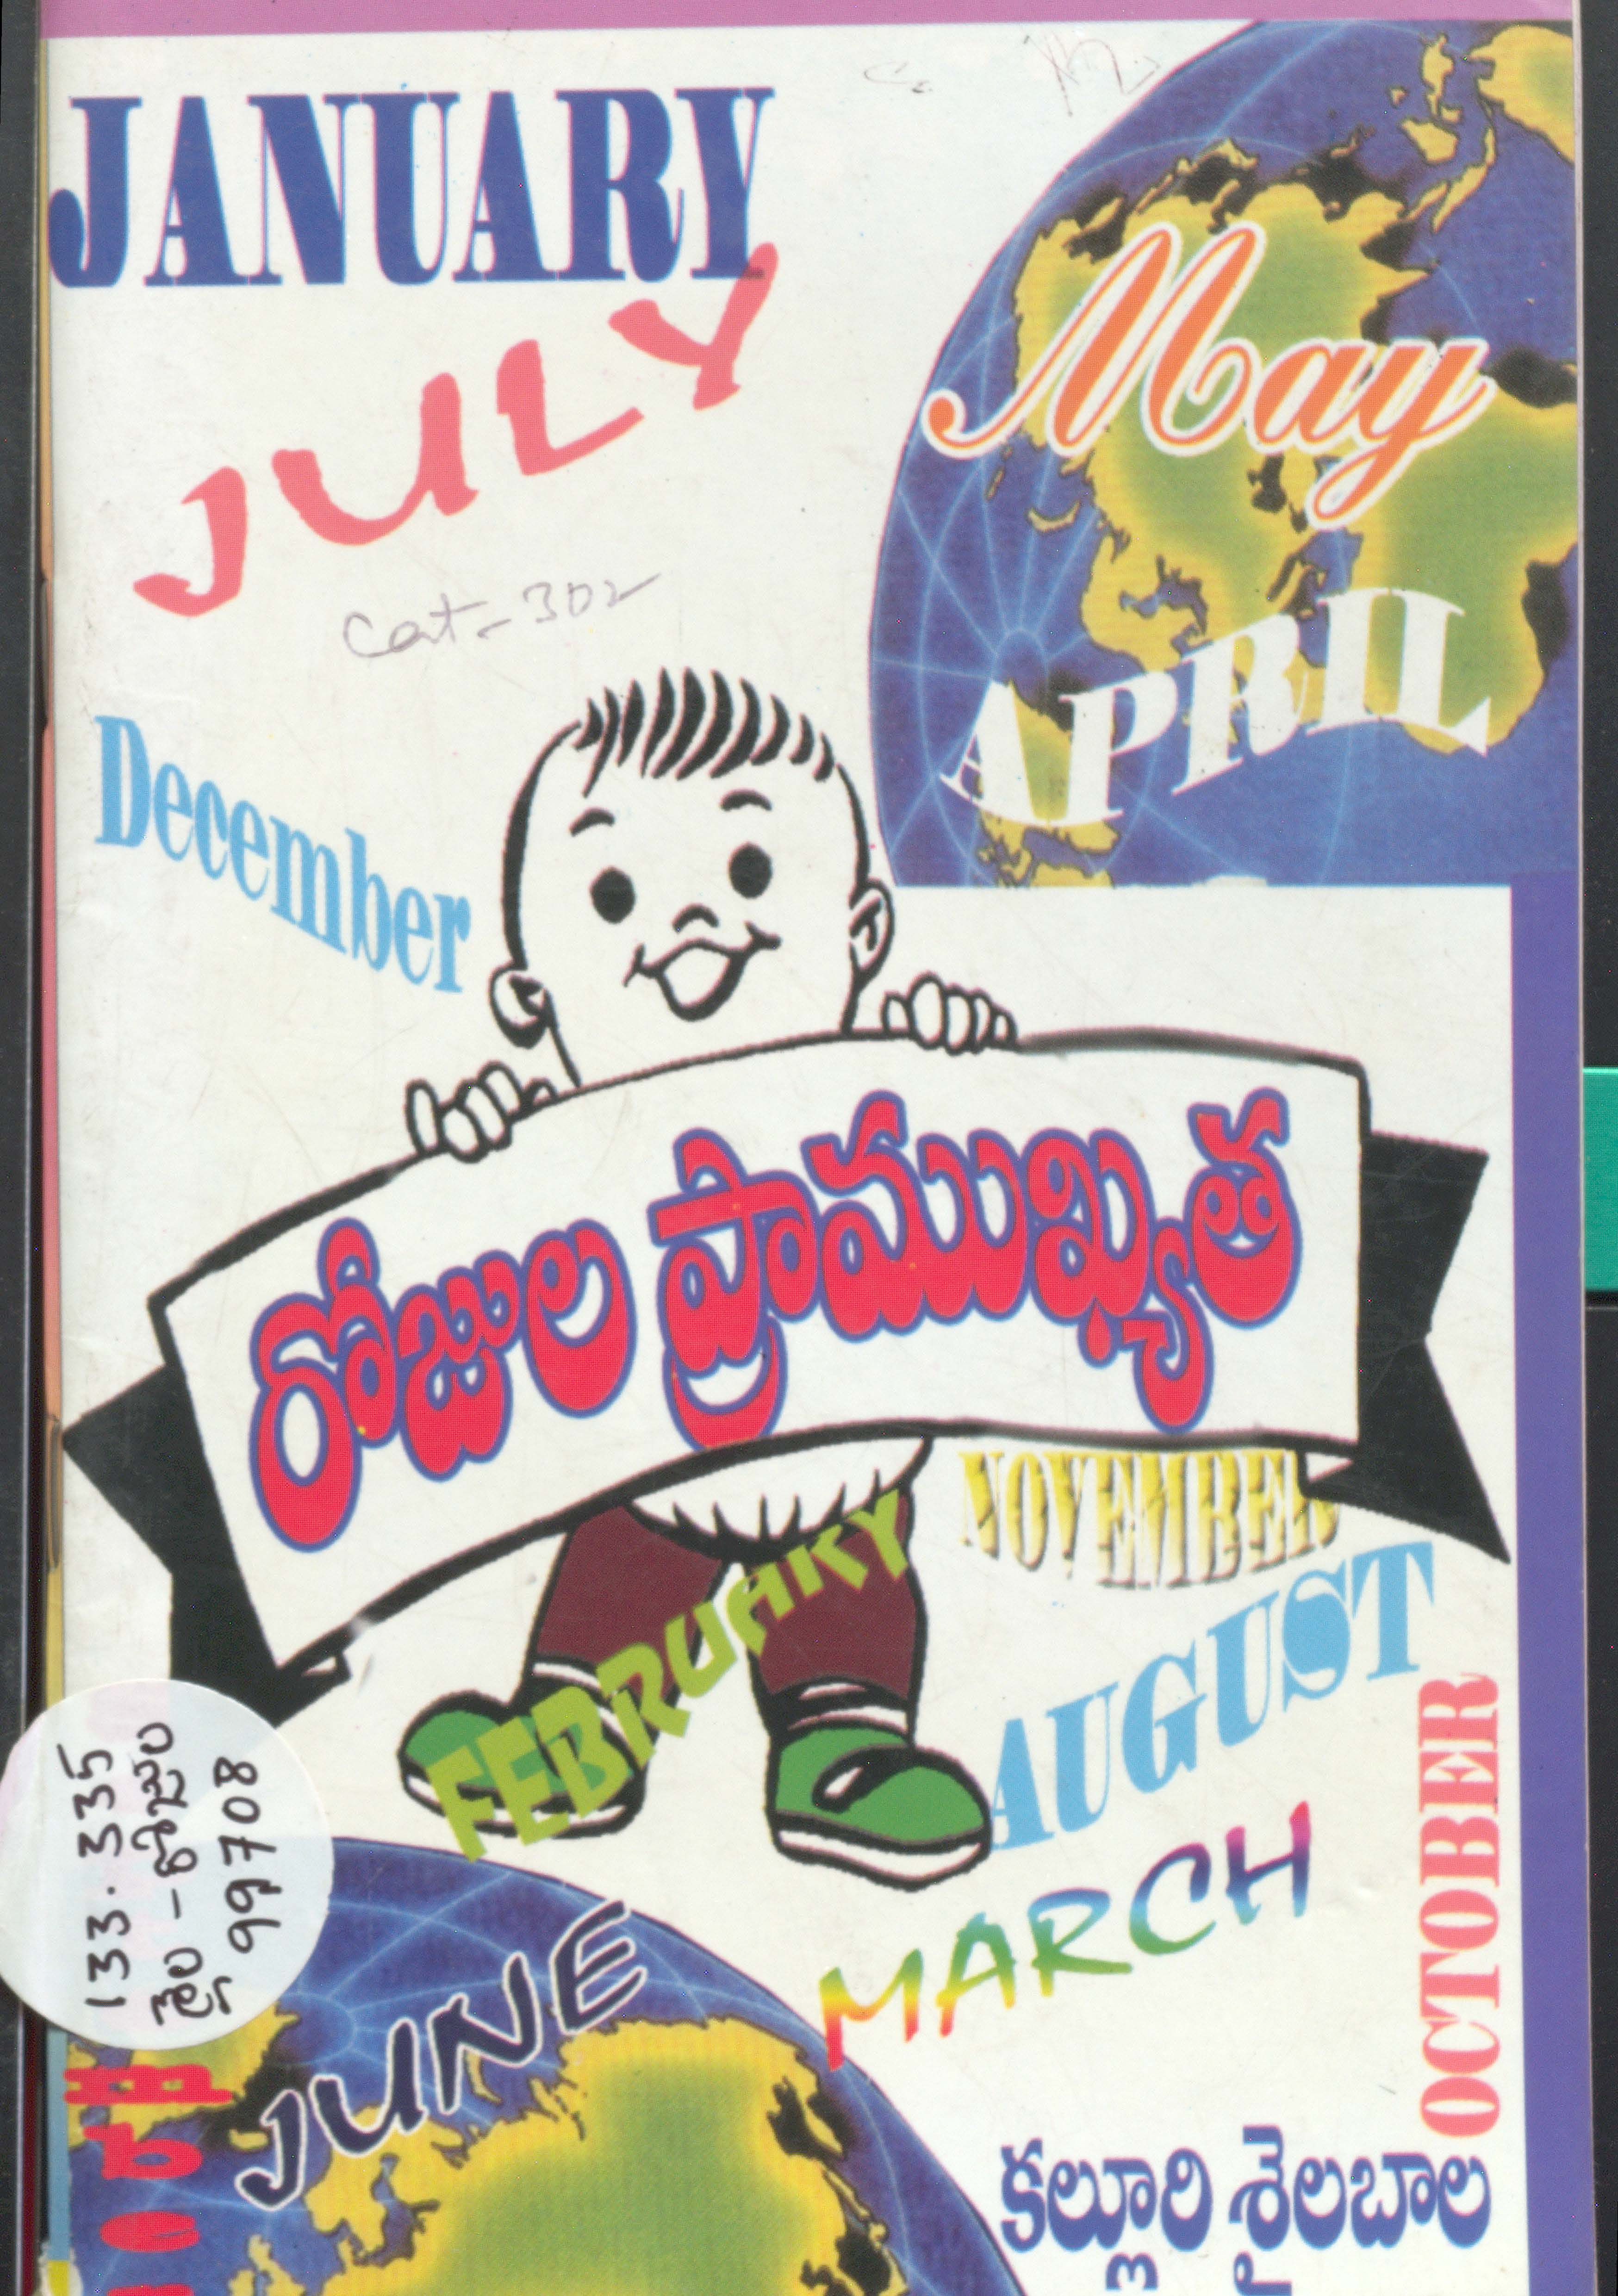 JANUARY
JULY
May
Cat-302
APRIL
December
రోజుల ప్రాముఖ్యత
NOVEMBER
FEBRUARY
AUGUST
OCTOBER
MARCH
133.335
శైల - రోజుల
99708
JUNE
కల్లూరి శైలబాల